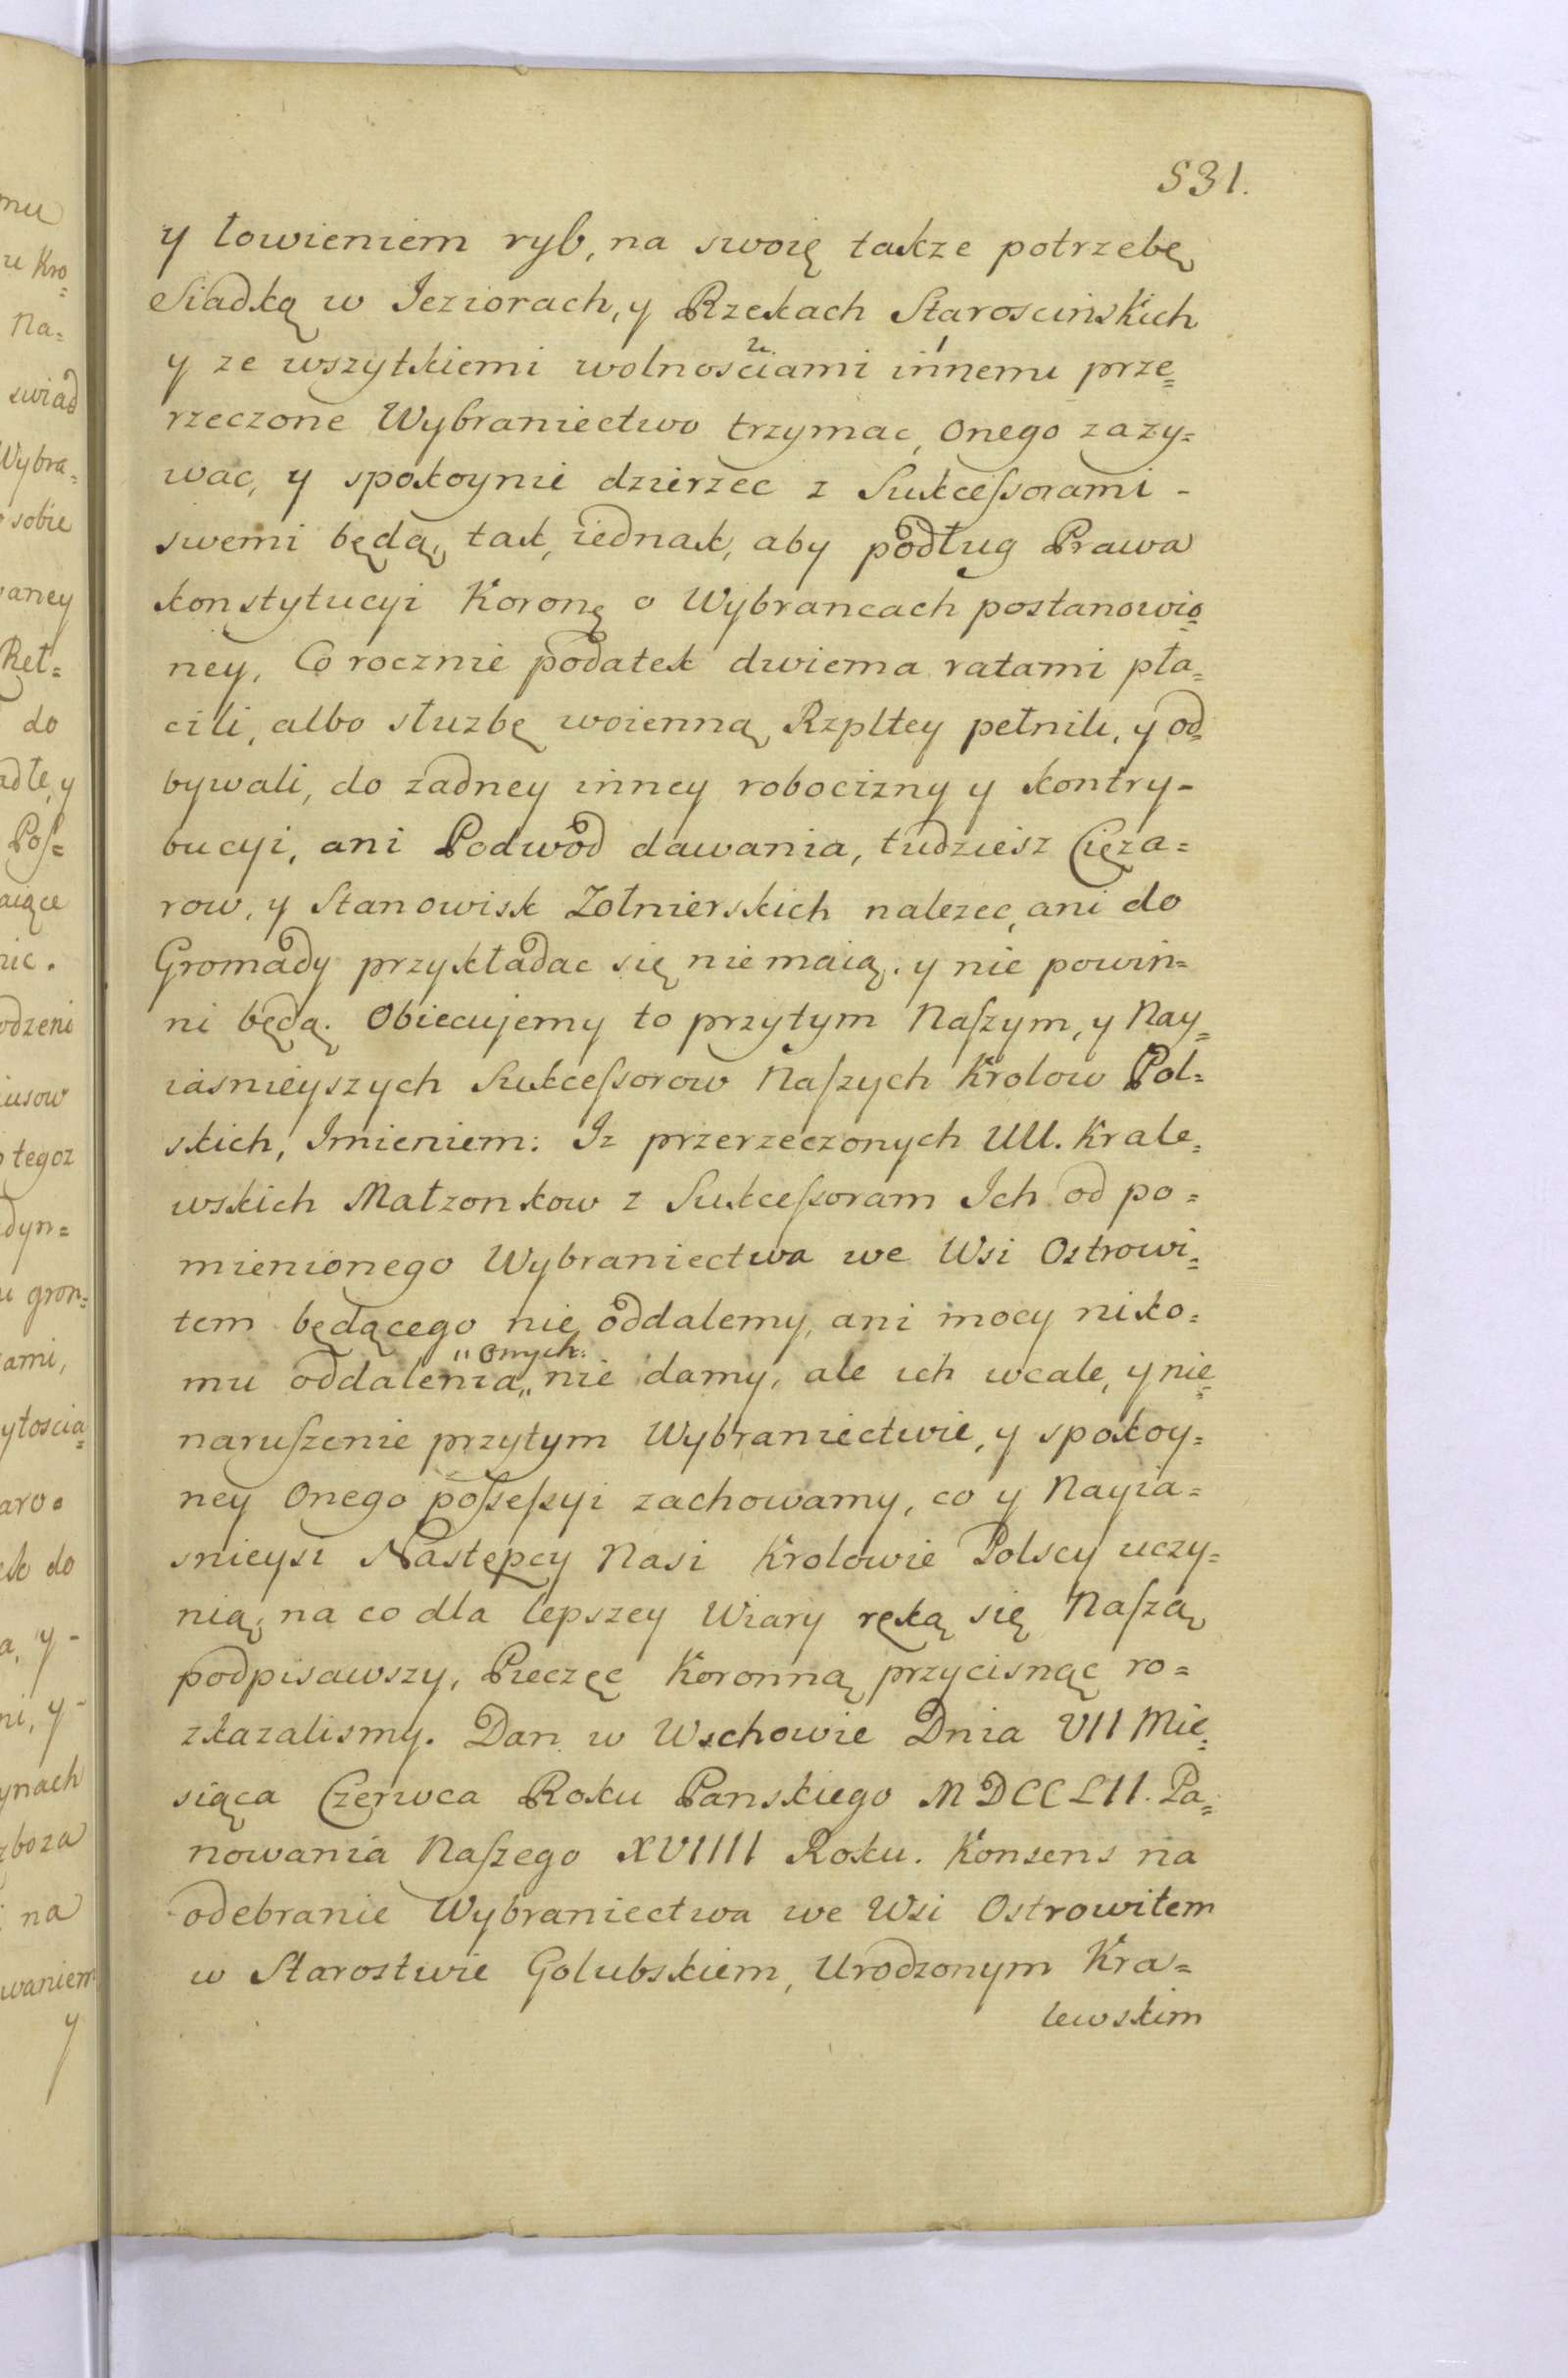 531.
y łowieniem ryb, na swoię takze potrzebę
Siadką w Ieziorach, y Rzekach Staroscinskich
y ze wszytkiemi wolnosciami 2. innemi 1 prze=
rzeczone Wybraniectwo trzymac, onego zazy=
wac, y spokoynie dzierzec z Sukceſsorami -
swemi będą, tak iednak, aby podług Prawa
konstytucyi Koronę o Wybrancach postanowio=
ney, Co rocznie podatek dwiema ratami pła=
cili, albo służbę woienną Rzpltey pełnili, y od=
bywali, do zadney inney robocizny y kontry-
bucyi, ani Podwod dawania, tudziesz Cięza=
row, y Stanowisk Zołnierskich nalezec, ani do
Gromady przykładac się nie maią. y nie powin=
ni będą. Obiecujemy to przytym Naſzym, y Nay=
iasnieyszych Sukceſsorow Naſzych Krolow Pol=
skich, Imieniem: Iz przerzeczonych UU. Krale=
wskich Małzonkow z Sukceſsoram Ich od po=
mienionego Wybraniectwa we Wsi Ostrowi=
tem będącego nie oddalemy, ani mocy niko=
mu oddalenia „onych: „ nie damy, ale ich wcale, y nie=
naruſzenie przytym Wybraniectwie, y spokoy=
ney Onego poſseſsyi zachowamy, co y Nayia=
snieysi Następcy Nasi Krolowie Polscy uczy=
nią, na co dla lepszey Wiary ręką się Naſzą
podpisawszy, Pieczęc Koronną przycisnąc ro=
zkazalismy. Dan w Wschowie Dnia VII Mie=
siąca Czerwca Roku Panskiego MDCCLII. Pa=
nowania Naſzego XVIIII Roku. Konsens na
odebranie Wybraniectwa we Wsi Ostrowitem
w Starostwie Golubskiem, Urodzonym Kra=
lewskim